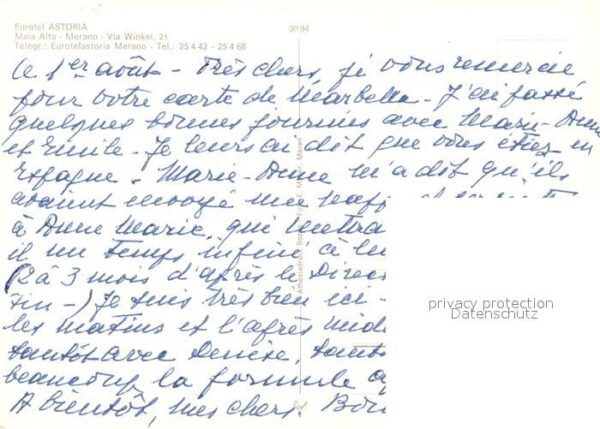 Eurotel ASTORIA
Maia Alta - Merano - Via Winkel, 21
Telegr.: Eurotelastoria Merano - Tel.: 25 4 42 - 25 4 68
30 94
Le 1er août - Très chers, je vous remercie
pour votre carte de Marbella - J'ai passé
quelques bonnes journées avec Marie-Anne
et Emile - Je leur ai dit que vous étiez en
Espagne - Marie-Anne m'a dit qu'ils
avaient envoyé une
à Anne Marie, qui mettra
il un temps infini à
(2 à 3 mois d'après le Direc
) Je suis très bien ici -
les matins et l'après mid
tantôt avec Denise, tant
beaucoup la formule
A bientôt, mes chers. Bon
privacy protection
Datenschutz